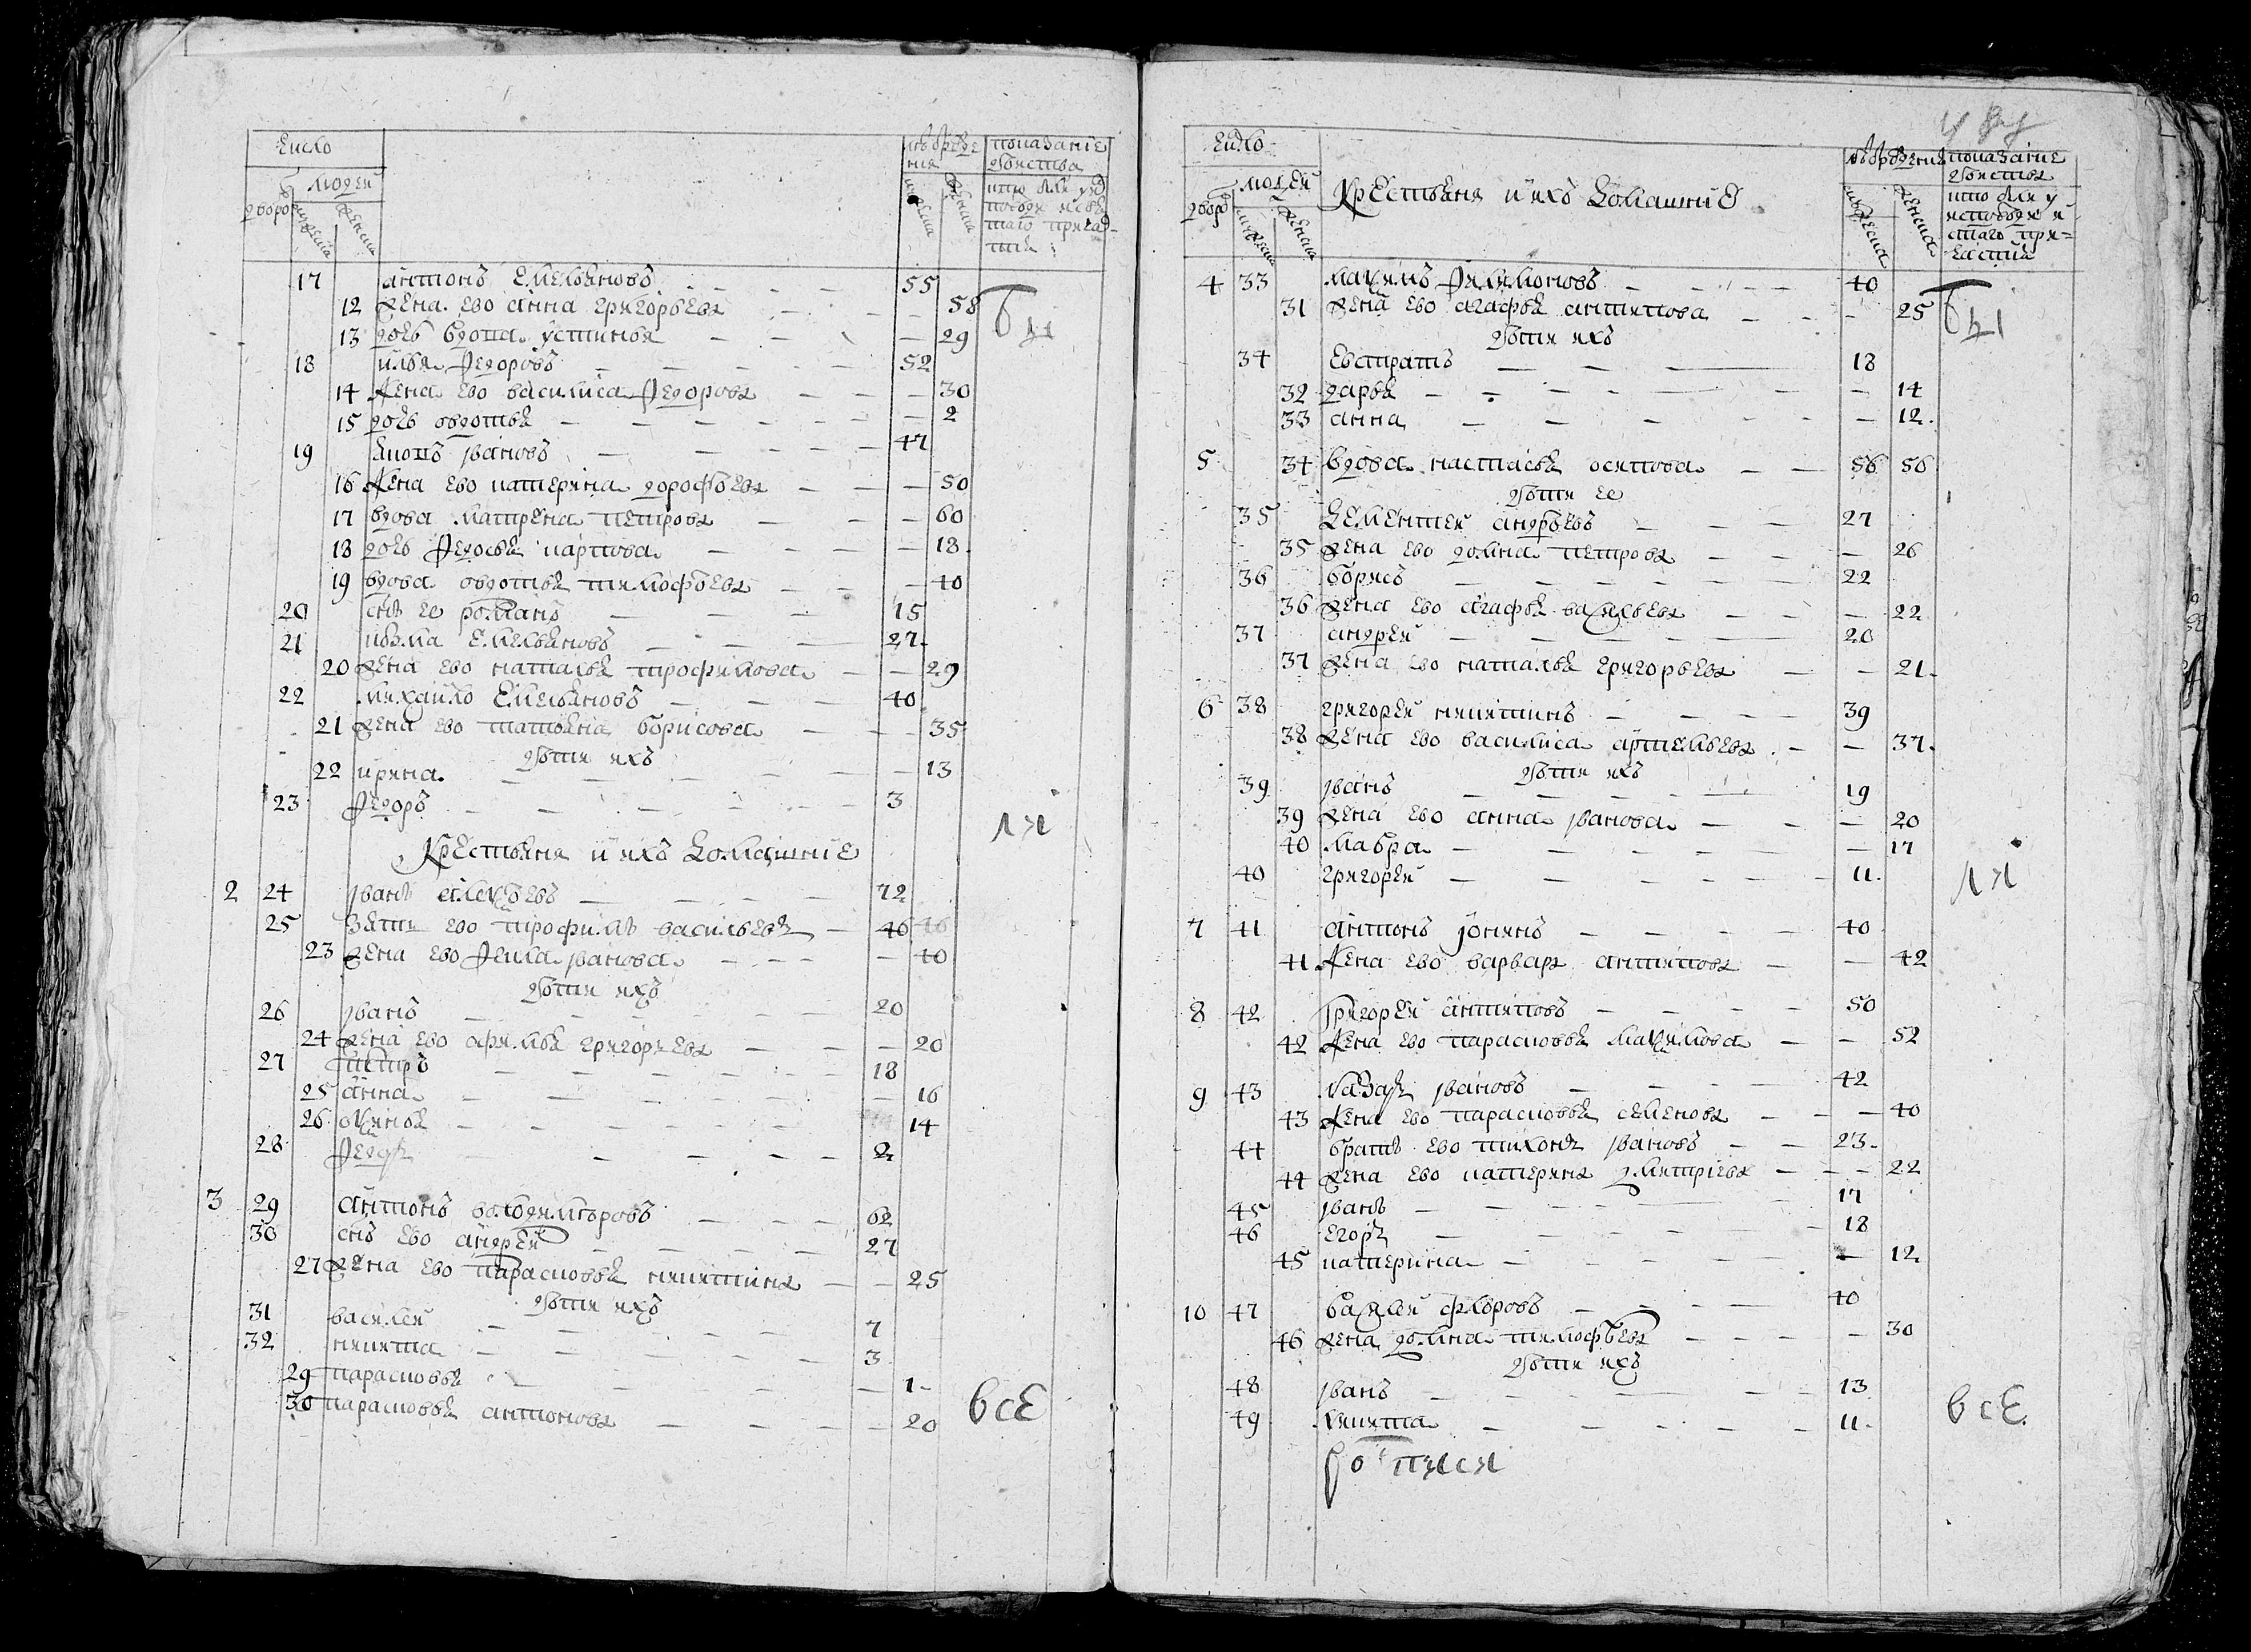 Число
людей
дворо
мужеска
женска
от рожде
ния
мужеска
женска
показание
действа
кто был у
исповеди и свя
таго прича
стия
17 антонъ емельяновъ 55
12 жена ево анна григорьева 58
13 дочь вдова устинья 29
18 илья Федоровъ 52
14 жена ево василиса Федорова 30
15 дочь овдотья 2
19 ивановъ 47
16 жена ево катерина дорофѣева 50
17 вдова матрена петрова 60
18 дочь Федосья карпова 18
19 вдова овдотья тимофѣева 40
20 снъ ее романъ 15
21 кузма емельяновъ 27
20 жена ево наталья трофимова 29
22 михайло емельяновъ 40
21 жена ево татьяна борисова 35
дѣти ихъ
22 ирина 13
23 Федоръ 3
Крестьяня и ихъ домашние
2 24 иванъ алексѣевъ 72
25 зять ево трофимъ васильевъ 46
23 жена ево Фекла иванова 40
дѣти ихъ
26 иванъ 20
24 жена ево офимья григориева 20
27 петръ 18
25 анна 16
26 оксинья 14
28 Федоръ 2
3 29 антонъ володимеровъ 62
30 снъ ево андрей 27
27 жена ево парасковья никитина 25
дѣти ихъ
31 василей 7
32 никита 3
29 парасковья 1
30 парасковья антонова 20
бы
ли
все
Число
людей
двор
мужеска
женска
Крестьяня и ихъ домашние
от рождения
мужеска
женска
показание
действа
кто был у
исповеди и
стаго при=
частия
4 33 максимъ Филимоновъ 40
31 жена ево агафья антипова 25
дѣти ихъ
34 евстратъ 18
32 дарья 14
33 анна 12
5 34 вдова настасья осипова 56 56
дѣти ее
35 дементей андрѣевъ 27
35 жена ево домна петрова 26
36 борисъ 22
36 жена ево агафья васильева 22
37 андрей 20
37 жена ево наталья григорьева 21
6 38 григорей никитинъ 39
38 жена ево василиса артемьева 37
дѣти ихъ
39 иванъ 19
39 жена ево анна иванова 20
40 мавра 17
40 григорей 11
7 41 антонъ іонинъ 40
41 жена ево варвара антипова 42
8 42 григорей антиповъ 50
42 жена ево парасковья максимова 52
9 43 лазарь ивановъ 42
43 жена ево парасковья семенова 40
44 братъ ево тихонъ ивановъ 23
44 жена ево катерина дмитриева 22
45 иванъ 17
46 егоръ 18
45 катерина 12
10 47 василей фларовъ 40
46 жена домна тимофѣева 30
дѣти ихъ
48 иванъ 13
49 никита 11
бы
ли
все